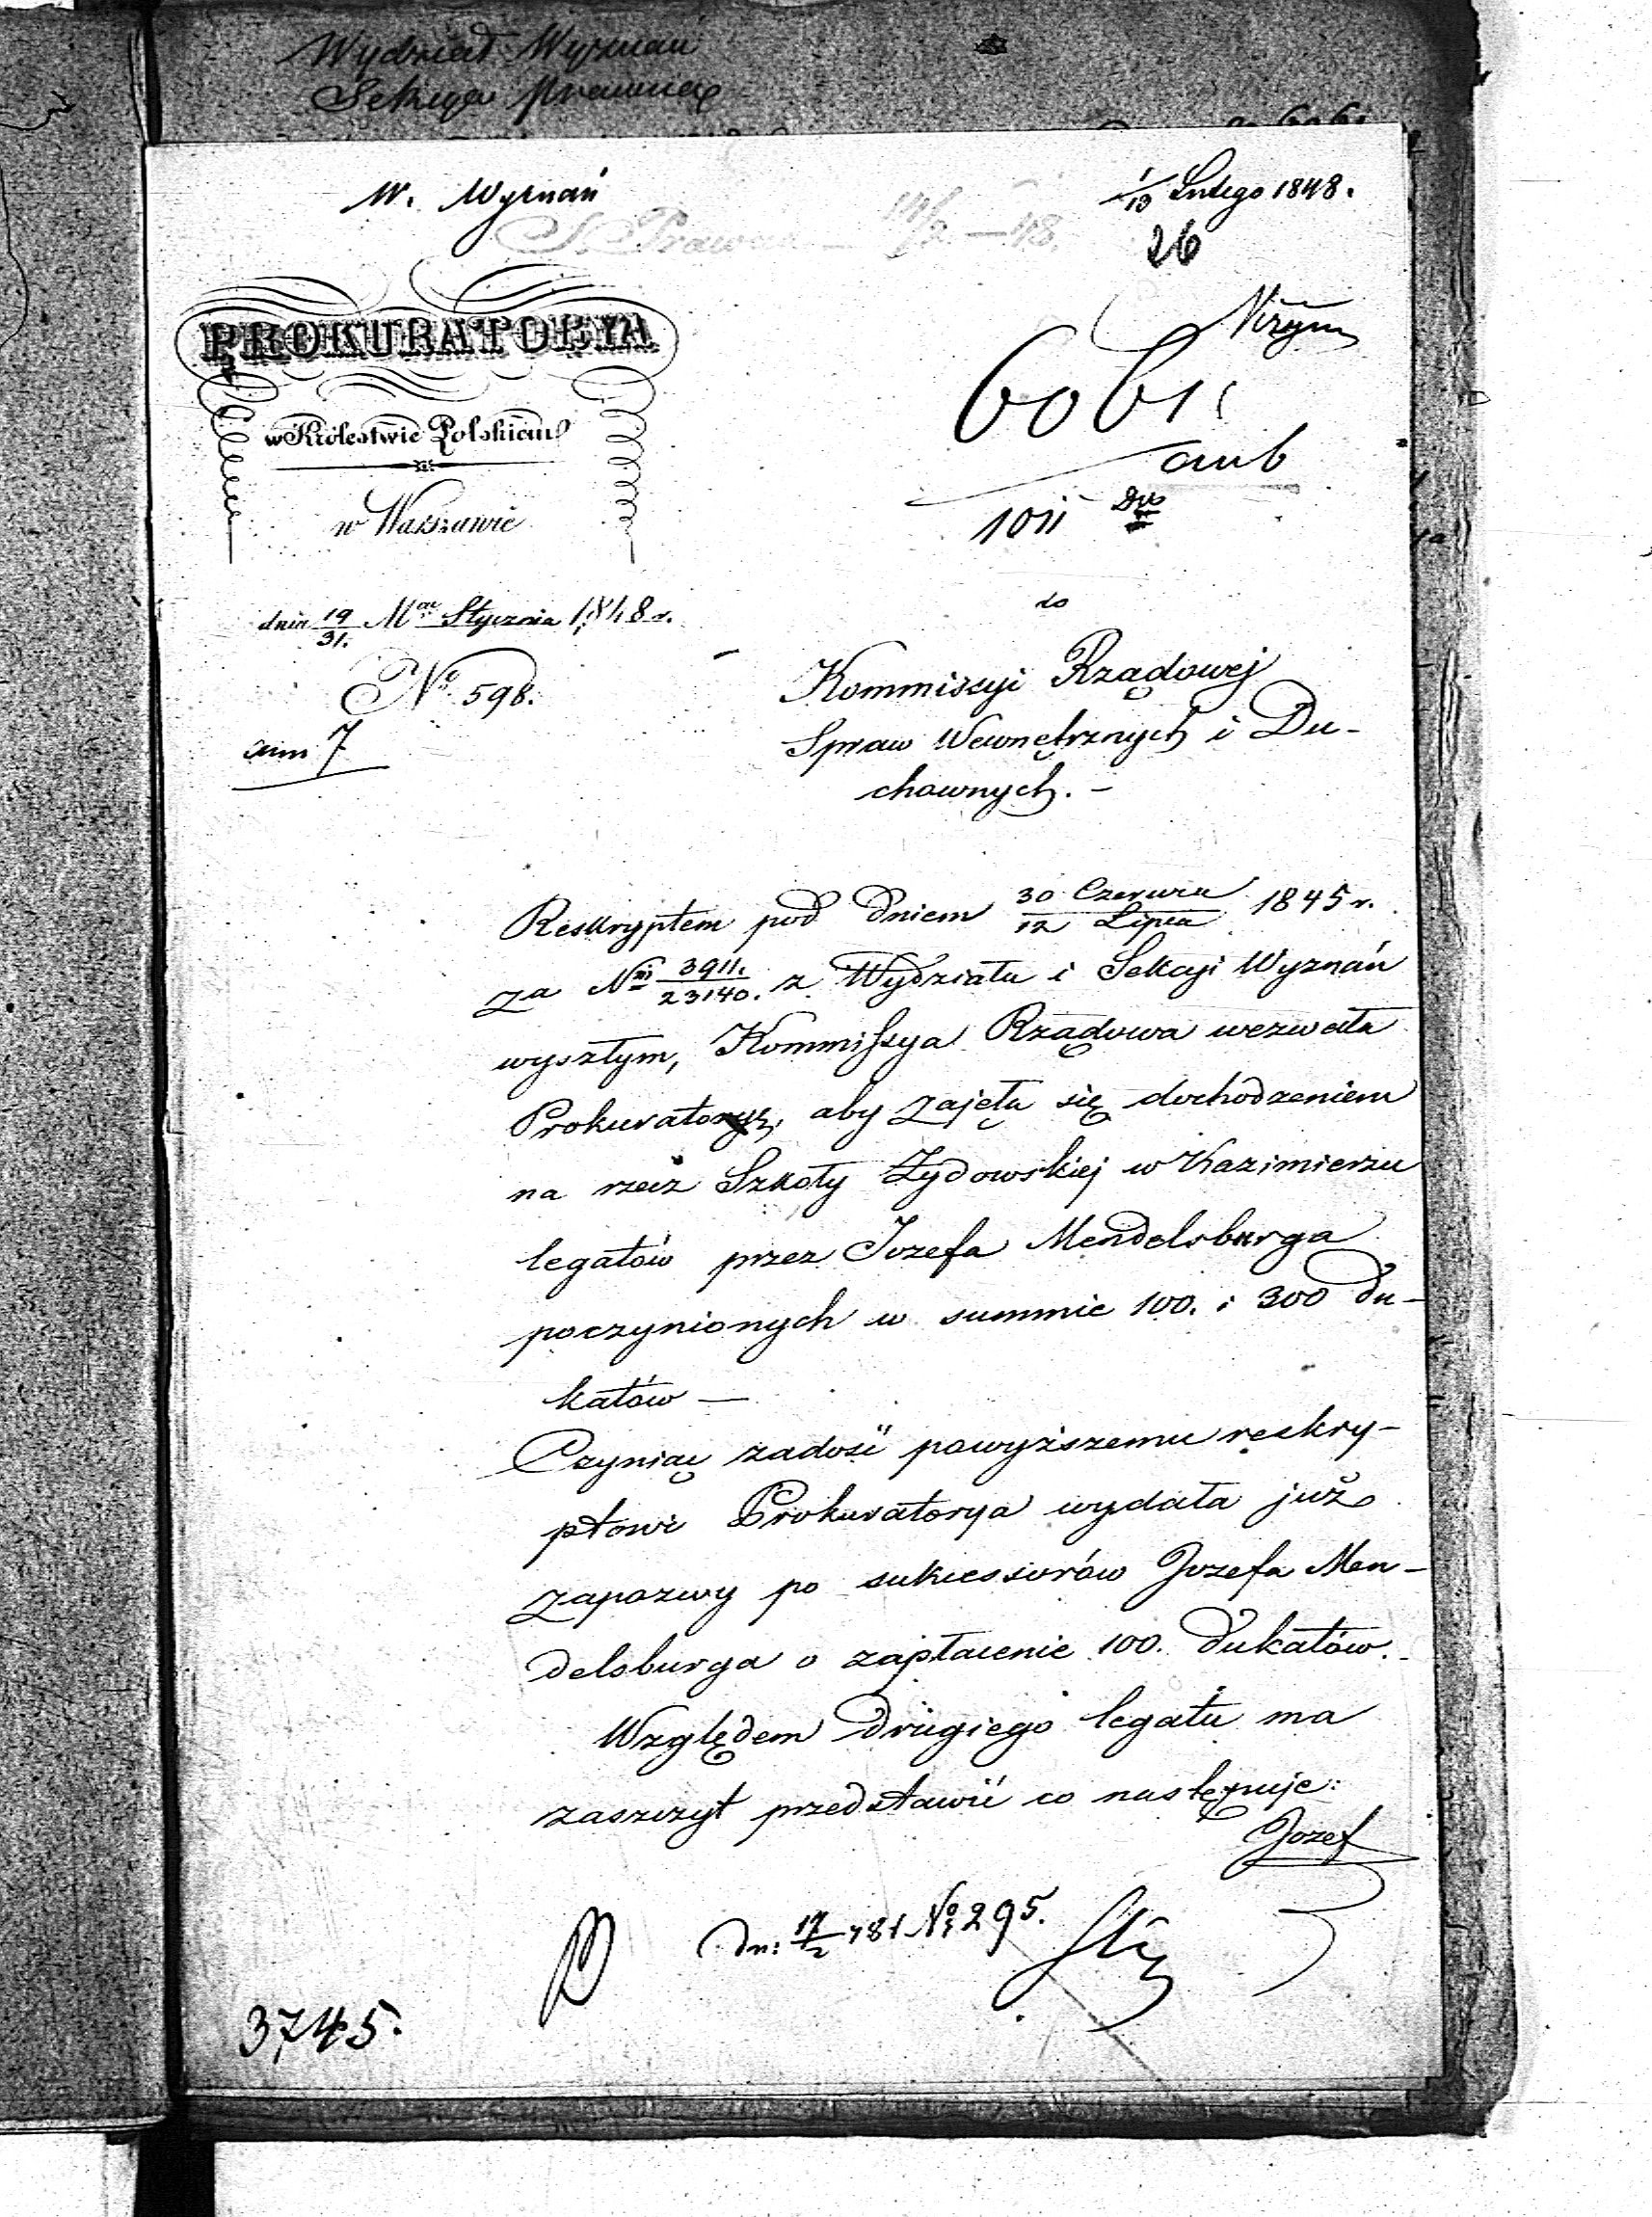 Wydział Wyznań
Sekcya Prawna
W. Wyznań
1/13 Lutego 1848.
S. Prawna
26
6061
cum 6
1011
PROKURATORYA
w Królestwie Polskiem
w Warszawie
dnia 19/31. Mca Stycznia 1848 r.
No 598.
cum 7
do
Kommissyi Rządowej
Spraw Wewnętrznych i Du-
chownych. -
Reskryptem pod dniem 30 Czerwca/12 Lipca 1845 r.
za Nm 3911./23140. z Wydziału i Sekcyi Wyznań
wyszłym, Kommissya Rządowa wezwała
Prokuratoryę, aby zajęła się dochodzeniem
na rzecz Szkoły Żydowskiej w Kazimierzu
legatów przez Jozefa Mendelsburga
poczynionych w summie 100. i 300 du-
katów —
Czyniąc zadość powyższemu reskry-
ptowi Prokuratorya wydała już
zapozwy po sukcessorów Jozefa Men-
delsburga o zapłacenie 100. dukatów.
Względem drugiego legatu ma
zaszczyt przedstawić co następuje:
Jozef
No 295.
3745.